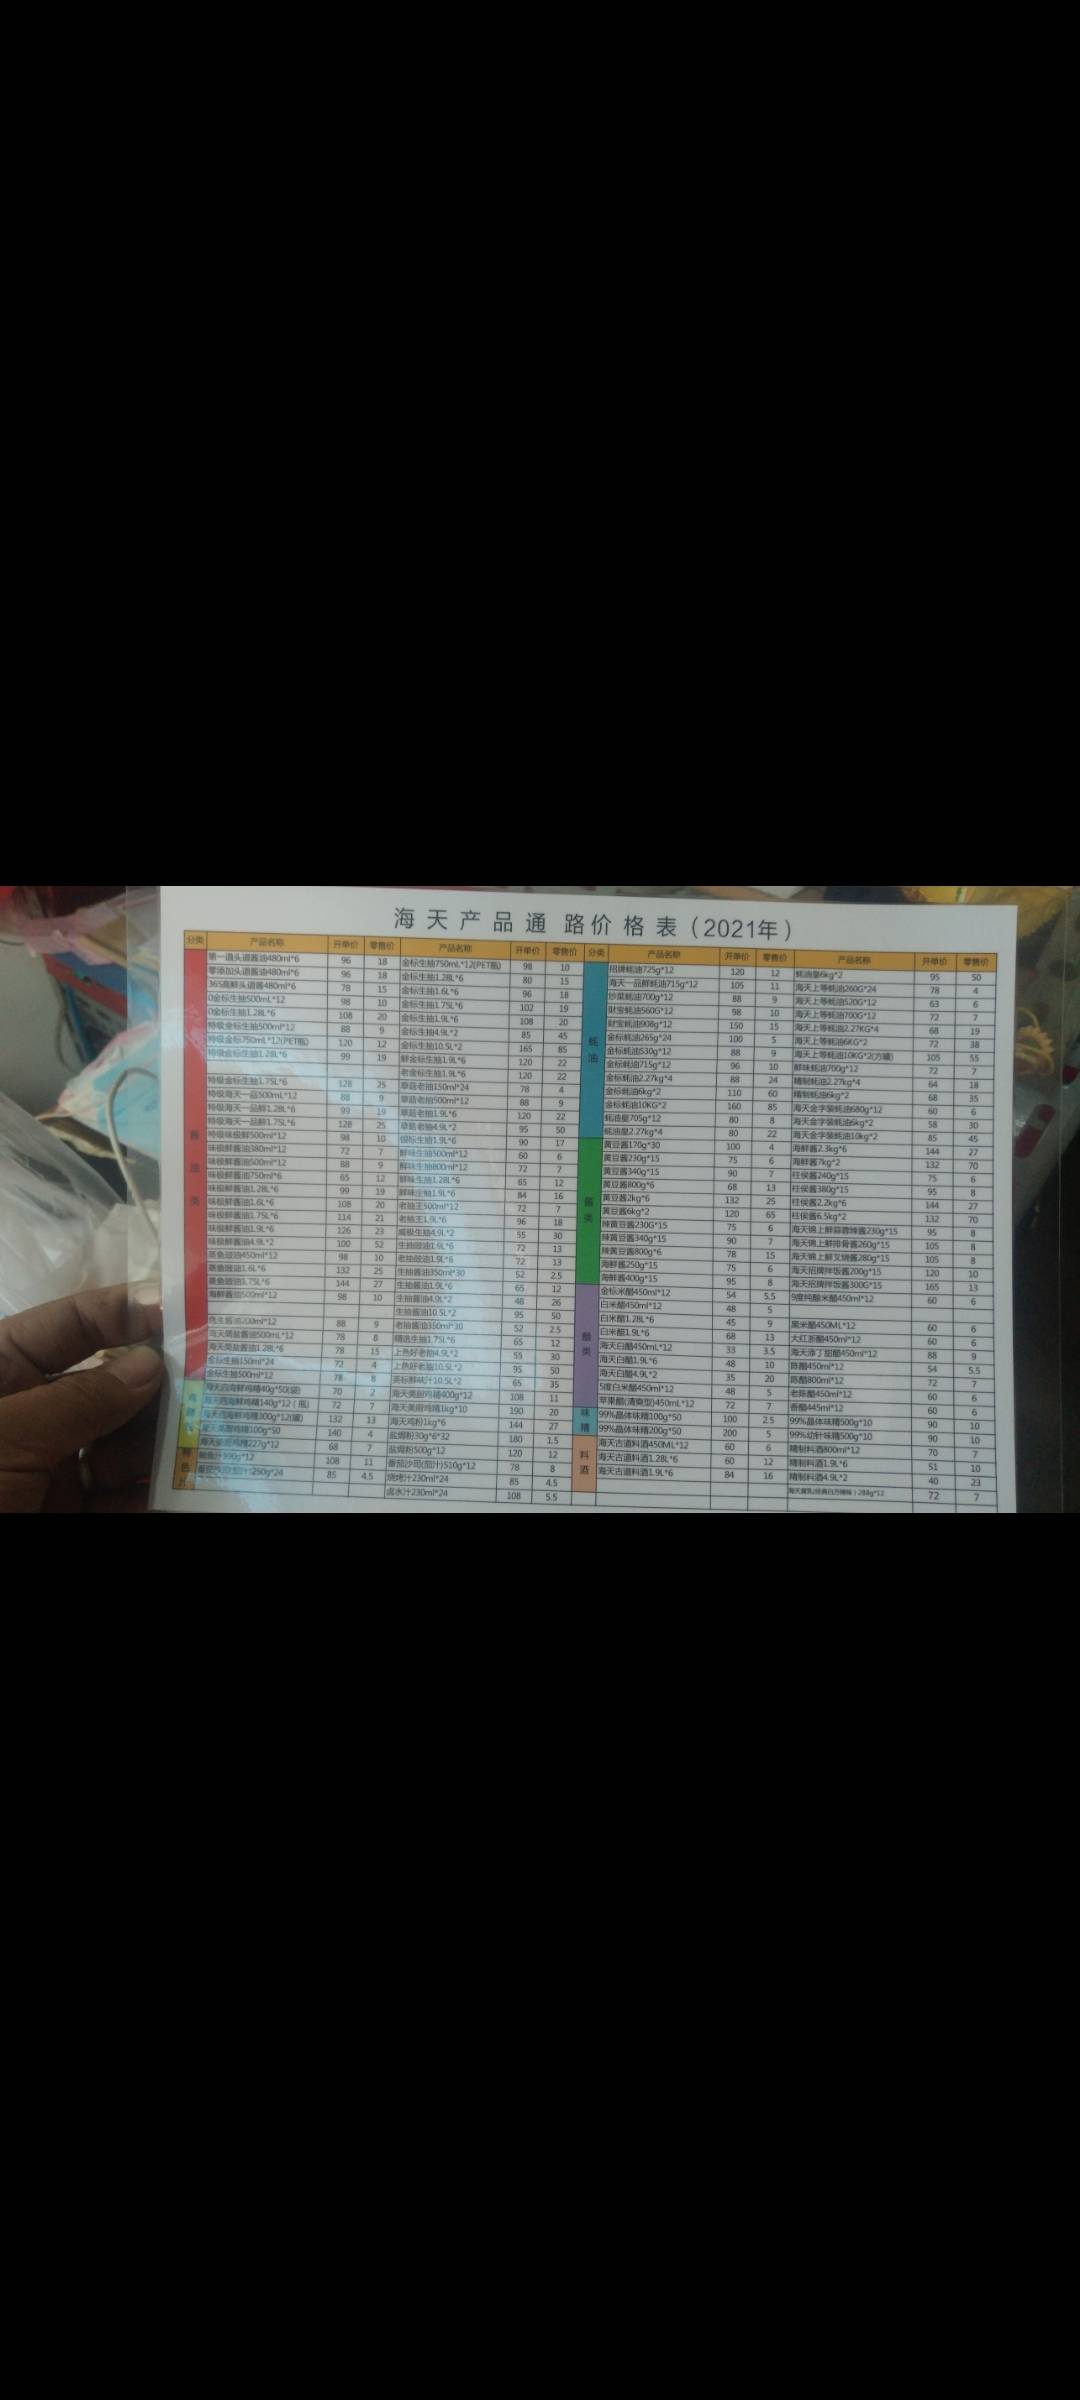 海天产品通路价格表（2021年）
分类 产品名称 开单价 零售价 产品名称 开单价 零售价 分类 产品名称 开单价 零售价 产品名称 开单价 零售价
酱油类
第一道头道酱油480ml*6 96 18
零添加头道酱油480ml*6 96 18
365高鲜头道酱480ml*6 78 15
0金标生抽500mL*12 98 10
0金标生抽1.28L*6 108 20
特级金标生抽500ml*12 88 9
特级金标750mL*12(PET瓶) 120 12
特级金标生抽1.28L*6 99 19
特级金标生抽1.75L*6 128 25
特级海天一品500mL*12 88 9
特级海天一品鲜1.28L*6 99 19
特级海天一品鲜1.75L*6 128 25
特级味极鲜500ml*12 98 10
味极鲜酱油380ml*12 72 7
味极鲜酱油500ml*12 88 9
味极鲜酱油750ml*6 65 12
味极鲜酱油1.28L*6 99 19
味极鲜酱油1.6L*6 108 20
味极鲜酱油1.75L*6 114 21
味极鲜酱油1.9L*6 126 23
味极鲜酱油4.9L*2 100 52
蒸鱼豉油450ml*12 98 10
蒸鱼豉油1.6L*6 132 25
蒸鱼豉油1.75L*6 144 27
海鲜酱油500ml*12 98 10
酱油200ml*12 88 9
海天简盐酱油500mL*12 78 8
海天简盐酱油1.28L*6 78 15
金标生抽150ml*24 72 4
金标生抽500ml*12 78 8
金标生抽750mL*12(PET瓶) 98 10
金标生抽1.28L*6 80 15
金标生抽1.6L*6 96 18
金标生抽1.75L*6 102 19
金标生抽1.9L*6 108 20
金标生抽4.9L*2 85 45
金标生抽10.5L*2 165 85
鲜金标生抽1.9L*6 120 22
老金标生抽1.9L*6 120 22
草菇老抽150ml*24 78 4
草菇老抽500ml*12 88 9
草菇老抽1.9L*6 120 22
草菇老抽4.9L*2 95 50
银标生抽1.9L*6 90 17
鲜味生抽500ml*12 60 6
鲜味生抽800ml*12 72 7
鲜味生抽1.28L*6 65 12
鲜味生抽1.9L*6 84 16
老抽王500ml*12 72 7
老抽王1.9L*6 96 18
威极生抽4.9L*2 55 30
生抽豉油1.9L*6 72 13
老抽豉油1.9L*6 72 13
生抽酱油350ml*30 52 2.5
生抽酱油1.9L*6 65 12
生抽酱油4.9L*2 48 26
生抽酱油10.5L*2 95 50
老抽酱油350ml*30 52 2.5
精选生抽1.75L*6 65 12
上色好老抽4.9L*2 55 30
上色好老抽10.5L*2 95 50
英标鲜味汁10.5L*2 65 35
海天四海鲜鸡精40g*50(袋) 70 2
海天四海鲜鸡精140g*12（瓶） 72 7
海天四海鲜鸡精300g*12(罐) 132 13
海天美厨鸡精100g*50 140 4
海天美厨鸡精227g*12 68 7
海天美厨鸡精400g*12 108 11
海天美厨鸡精1kg*10 190 20
海天鸡粉1kg*6 144 27
盐焗粉30g*6*32 180 1.5
盐焗粉500g*12 120 12
鲍鱼汁390g*12 108 11
番茄沙司(茄汁)250g*24 85 4.5
番茄沙司(茄汁)510g*12 78 8
烧烤汁230ml*24 85 4.5
卤水汁230ml*24 108 5.5
蚝油
招牌蚝油725g*12 120 12
海天一品鲜蚝油715g*12 105 11
炒菜蚝油700g*12 88 9
财宝蚝油560G*12 98 10
财宝蚝油908g*12 150 15
金标蚝油265g*24 100 5
金标蚝油530g*12 88 9
金标蚝油715g*12 96 10
金标蚝油2.27kg*4 88 24
金标蚝油6kg*2 110 60
金标蚝油10KG*2 160 85
蚝油皇705g*12 80 8
蚝油皇2.27kg*4 80 22
蚝油皇6kg*2 95 50
海天上等蚝油260G*24 78 4
海天上等蚝油520G*12 63 6
海天上等蚝油700G*12 72 7
海天上等蚝油2.27KG*4 68 19
海天上等蚝油6KG*2 72 38
海天上等蚝油10KG*2(方罐) 105 55
鲜味蚝油700g*12 72 7
精制蚝油2.27kg*4 64 18
精制蚝油6kg*2 68 35
海天金字装蚝油680g*12 60 6
海天金字装蚝油6kg*2 58 30
海天金字装蚝油10kg*2 85 45
酱类
黄豆酱170g*30 100 4
黄豆酱230g*15 75 6
黄豆酱340g*15 90 7
黄豆酱800g*6 68 13
黄豆酱2kg*6 132 25
黄豆酱6kg*2 120 65
辣黄豆酱230G*15 75 6
辣黄豆酱340g*15 90 7
辣黄豆酱800g*6 78 15
海鲜酱250g*15 75 6
海鲜酱400g*15 95 8
海鲜酱2.3kg*6 144 27
海鲜酱7kg*2 132 70
柱侯酱240g*15 75 6
柱侯酱380g*15 95 8
柱侯酱2.2kg*6 144 27
柱侯酱6.5kg*2 132 70
海天锦上鲜蒜蓉辣酱230g*15 95 8
海天锦上鲜排骨酱260g*15 105 8
海天锦上鲜叉烧酱280g*15 105 8
海天招牌拌饭酱200g*15 120 10
海天招牌拌饭酱300G*15 165 13
醋类
金标米醋450ml*12 54 5.5
白米醋450ml*12 48 5
白米醋1.28L*6 45 9
白米醋1.9L*6 68 13
海天白醋450mL*12 33 3.5
海天白醋1.9L*6 48 10
海天白醋4.9L*2 35 20
5度白米醋450ml*12 48 5
苹果醋(清爽型)450mL*12 72 7
9度纯酿米醋450ml*12 60 6
黑米醋450ML*12 60 6
大红浙醋450ml*12 60 6
海天添丁甜醋450ml*12 88 9
陈醋450ml*12 54 5.5
陈醋800ml*12 72 7
老陈醋450ml*12 60 6
香醋445ml*12 60 6
味精
99%晶体味精100g*50 100 2.5
99%晶体味精200g*50 200 5
99%晶体味精500g*10 90 10
99%幼针味精500g*10 90 10
料酒
海天古道料酒450ML*12 60 6
海天古道料酒1.28L*6 60 12
海天古道料酒1.9L*6 84 16
精制料酒800ml*12 70 7
精制料酒1.9L*6 51 10
精制料酒4.9L*2 40 23
288g*12 72 7